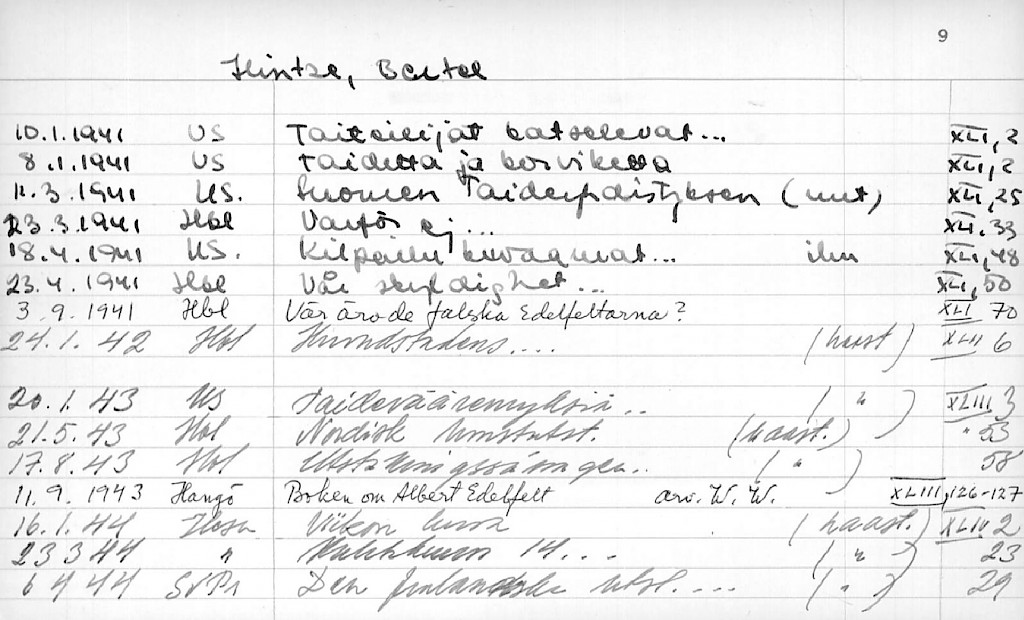 9
Hintze, Bertel
10.1.1941 US Taiteilijat katselevat... XLI, 2
8.1.1941 US Taidetta ja korviketta XLI, 2
11.3.1941 US. Suomen Taideyhdistyksen (uut) XLI, 25
23.3.1941 Hbl Varför ej... XLI. 33
18.4.1941 US. Kilpailu kuvaamat... XLI, 48
23.4.1941 Hbl Vår skyldighet... XLI, 50
3.9.1941 Hbl Var äro de falska Edelfeltarna? XLI 70
24.1.42 Hbl .... (haast) XLII 6
20.1.43 US Taideväärennyksiä.. ( " ) XLIII 3
21.5.43 Hbl Nordisk konstutst. (haast.) " 53
17.8.43 Hbl Utställningssäsongen.. ( " ) 58
11.9.1943 Hangö Boken om Albert Edelfelt arv. W. W. XLIII, 126-127
16.1.44 Viikon kuva (haast.) XLIV 2
23 3 44 " 14... ( " ) 23
6 4 44 SvPr Den finländska utst.... ( " ) 29